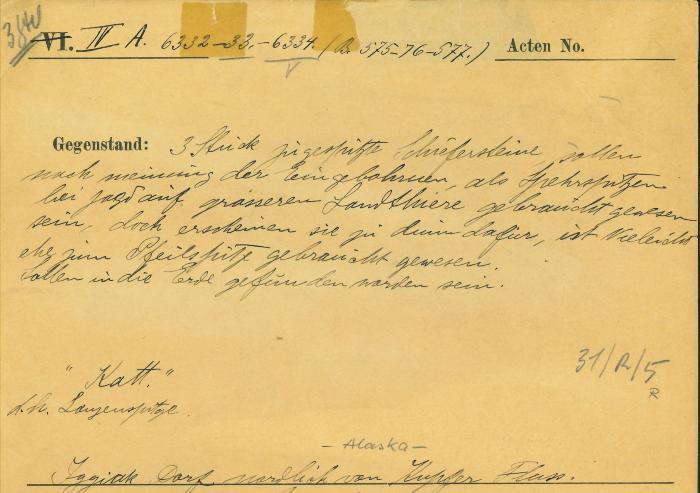 3840
VI. IV A. 6332-33.-6334. (R. 575-76-577.) Acten No.
Gegenstand: 3 Stück zugespitzte Schiefersteine, sollen
nach meinung der Eingebohrnen, als Spehrspitzen
bei Jagd auf grösseren Landthiere gebraucht gewesen
sein, doch erscheinen sie zu dünn dafür, ist vieleicht
ehe zum Pfeilspitz gebraucht gewesen.
Sollen in die Erde gefunden worden sein.
31/R/5
R
"Katt."
d.h. Lanzenspitze.
- Alaska -
Iggiak Dorf nordlich von Kupfer Fluss.